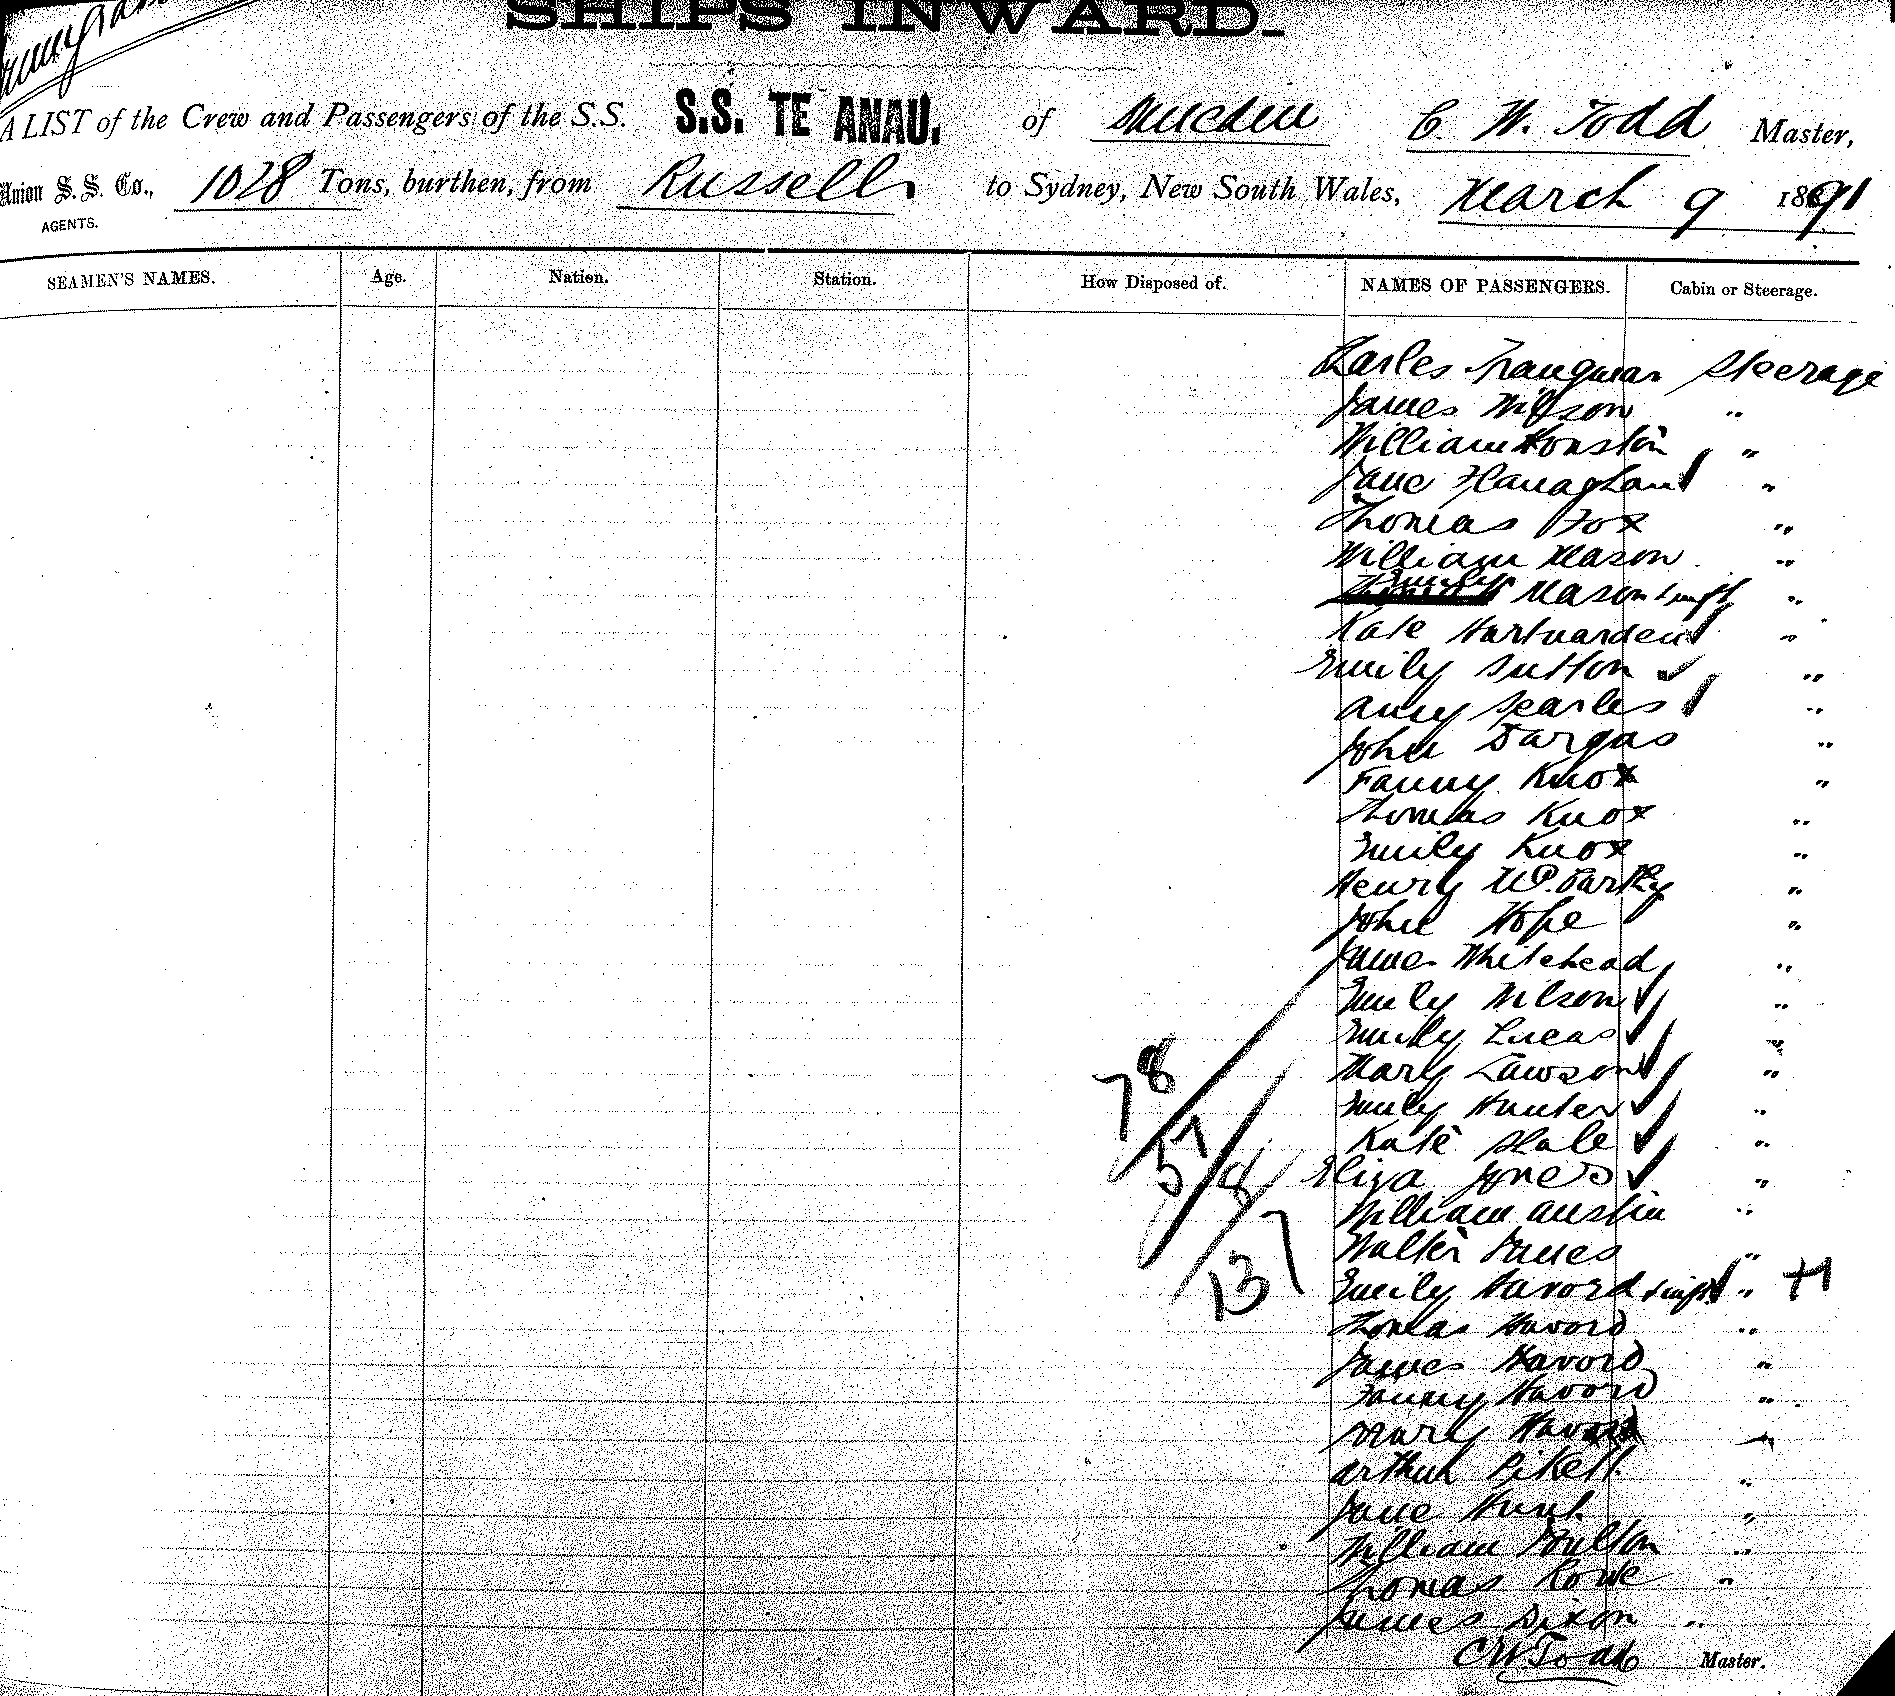 SHIPS INWARD.
A LIST of the Crew and Passengers of the S.S. S.S. TE ANAU. of Dunedin C. W. Todd Master,
Union S. S. Co., 1028 Tons, burthen, from Russell to Sydney, New South Wales, March 9 1891
AGENTS.
SEAMEN'S NAMES. Age. Nation. Station. How Disposed of. NAMES OF PASSENGERS. Cabin or Steerage.
Charles Tranquar Steerage
James Wilson "
William Houston "
Jane Flanaghan "
Thomas Fox "
William Mason "
Emily Mason & inft "
Kate "
Emily Sutton "
Amy Searles "
John Dargas "
Fanny Knox "
Thomas Knox "
Emily Knox "
Henry "
John Hope "
James Whitehead "
Emily Wilson "
Emily Lucas "
Mary Lawson "
Emily Hunter "
Kate Hale "
Eliza Jones "
William Austin "
Walter James "
Emily Havord & inft " +1
Thomas Havord "
James Havord "
Fanny Havord "
Mary Havord "
Arthur Pikett "
Jane Hunt "
William Poulton "
Thomas Rowe "
James Dixon "
C W. Todd Master.
78
57
8
137